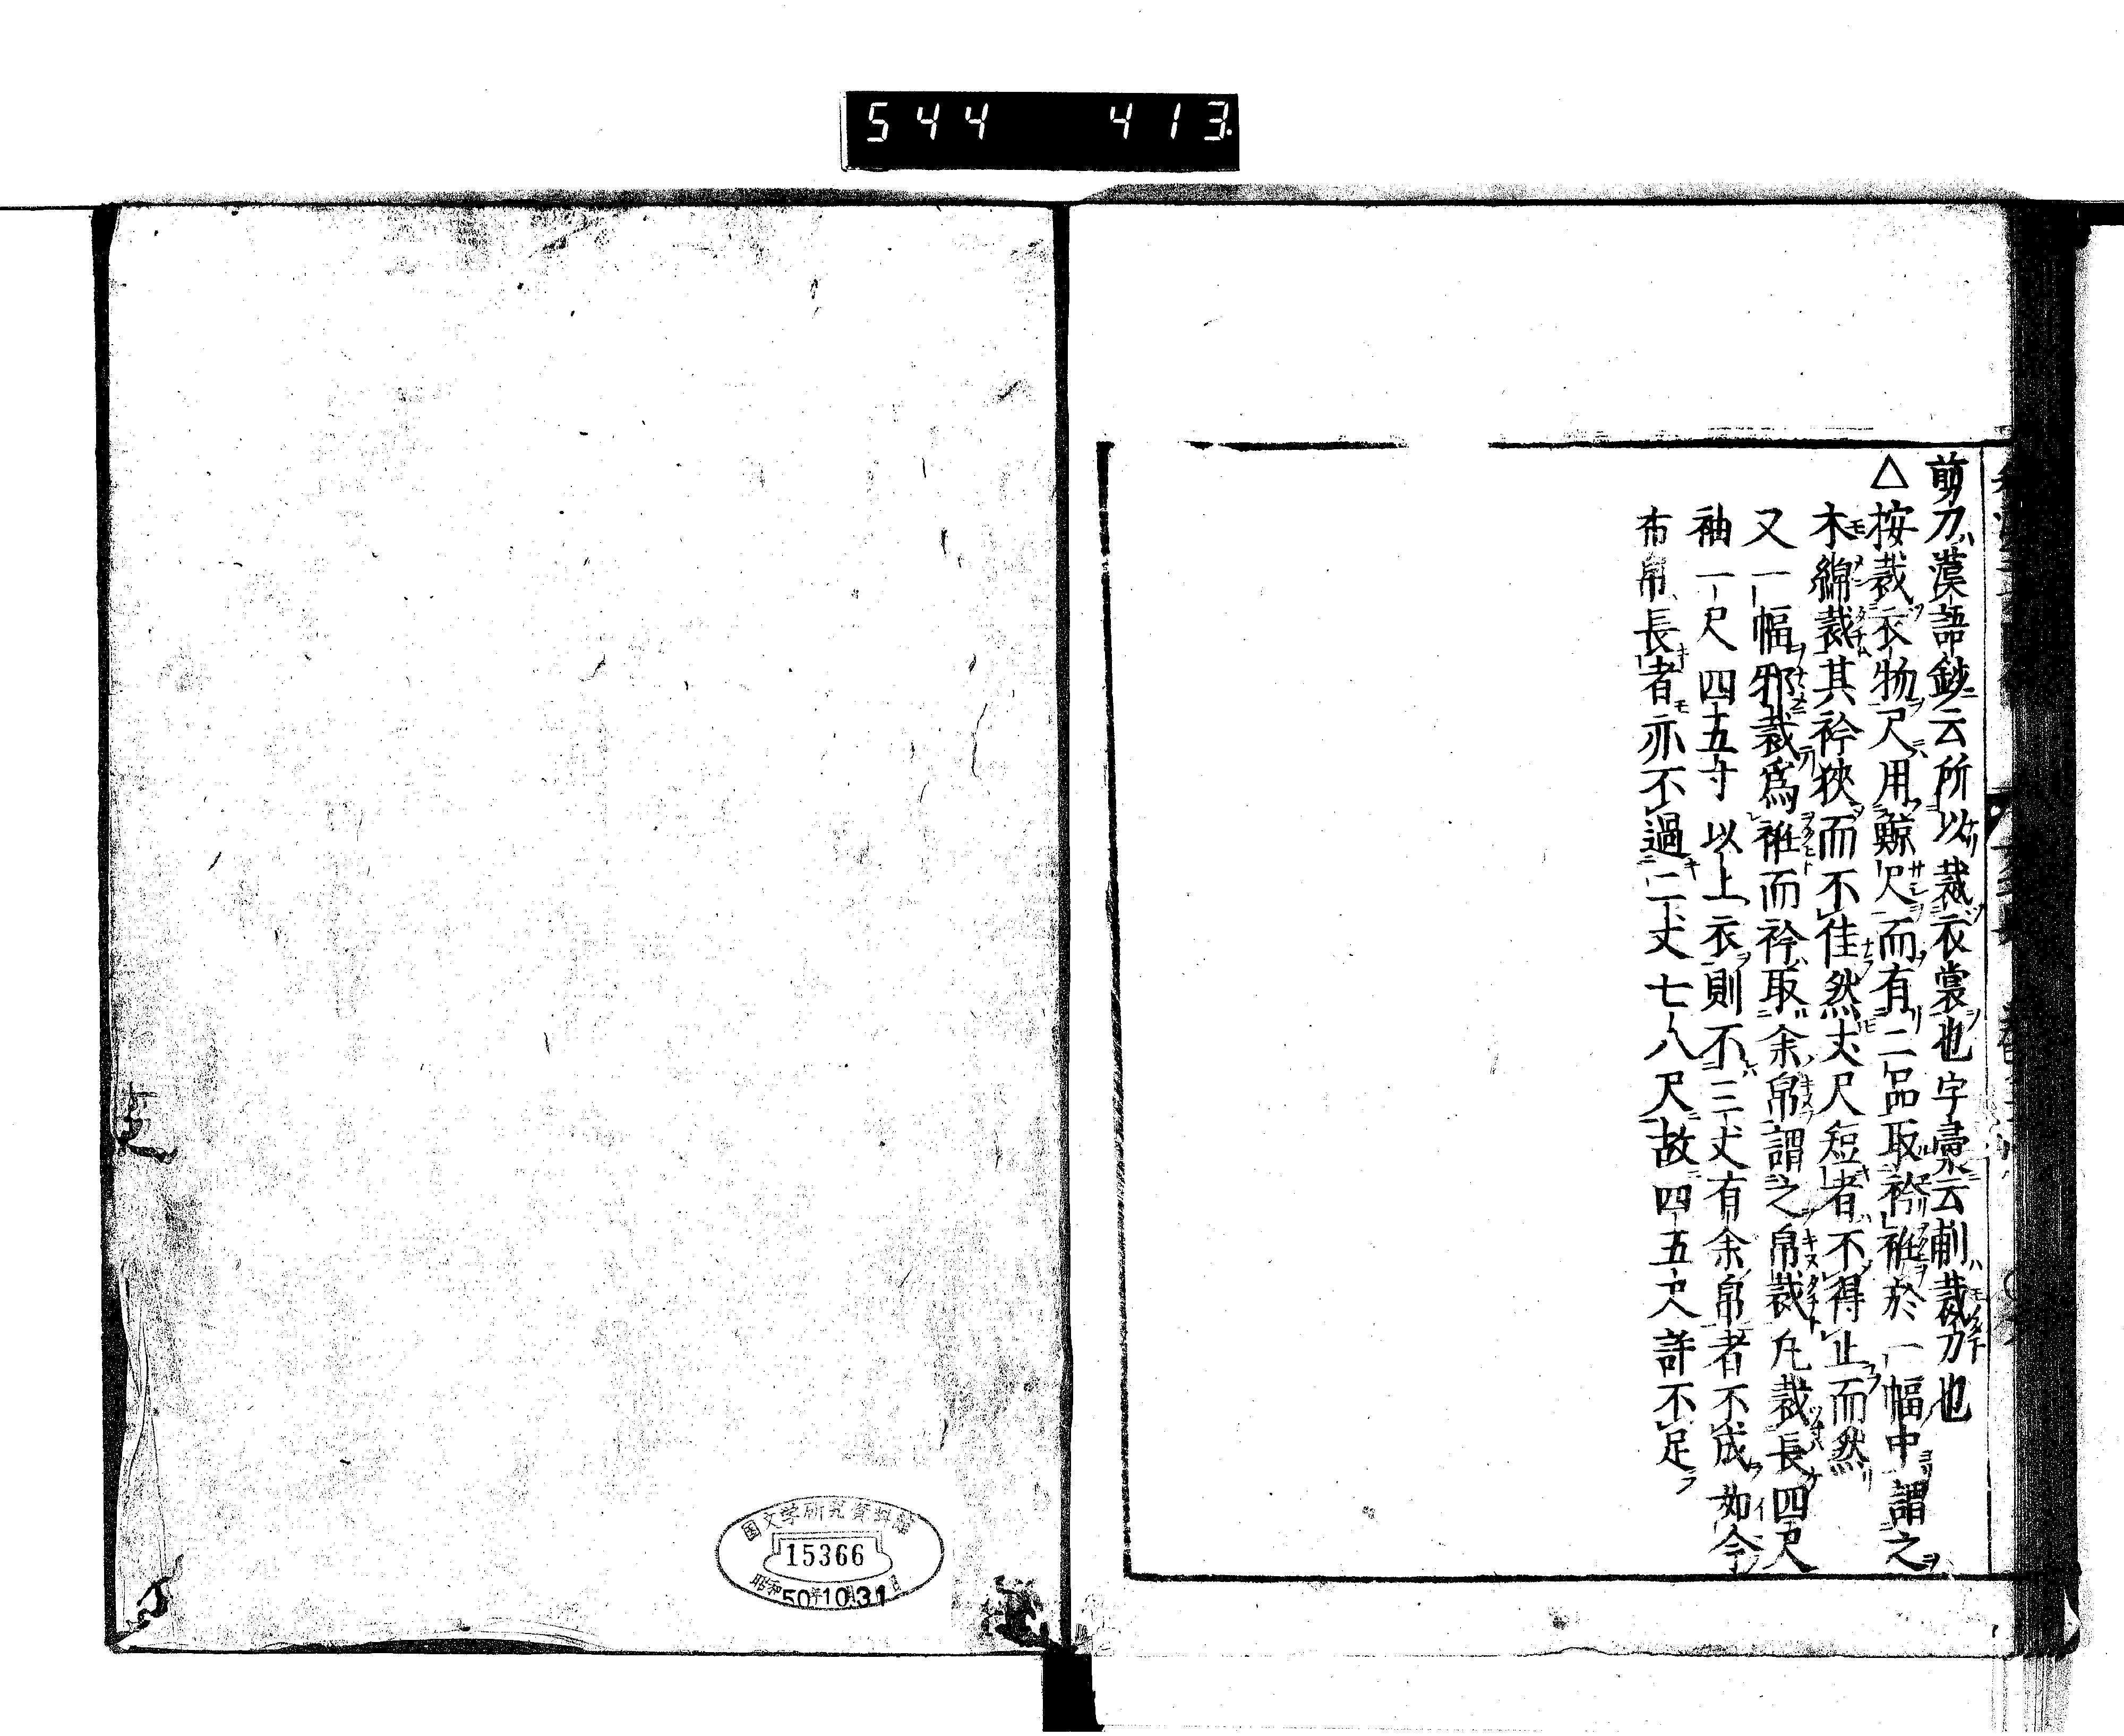 544 413
剪刀漢語鈔云所以裁衣裳也字彙云剬裁刀也
△按裁衣物尺用鯨尺而有二品取衿袵於一幅中謂之
木綿裁其衿狹而不佳然𠀋尺短者不得止而然
又一幅邪裁爲袵而衿取余帛謂之帛裁凡裁長四尺
袖一尺四五寸以上衣則不三丈有余帛者不成如今
布帛長者亦不過二丈七八尺故四五尺許不足
国文学研究資料館
15366
昭和50年10月31日